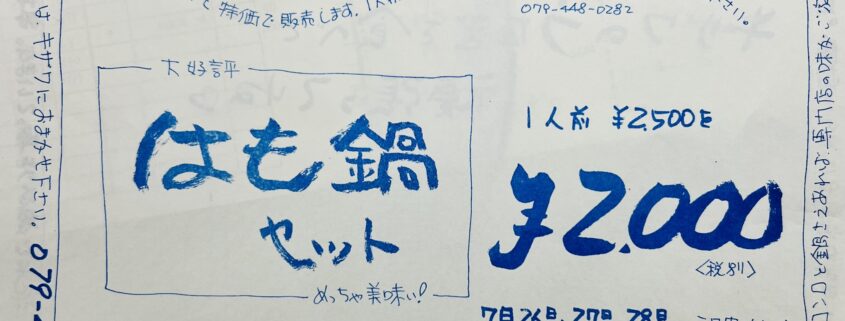 て特価で販売します。1人前
079-448-0282
さい。
大好評
はも鍋
セット
めっちゃ美味い!
1人前 ¥2,500を
¥2,000
<税別>
7月26日、27日、28日
は、キサワにおまかせ下さい。079-
コンロと鍋さえあれば、専門店の味がご